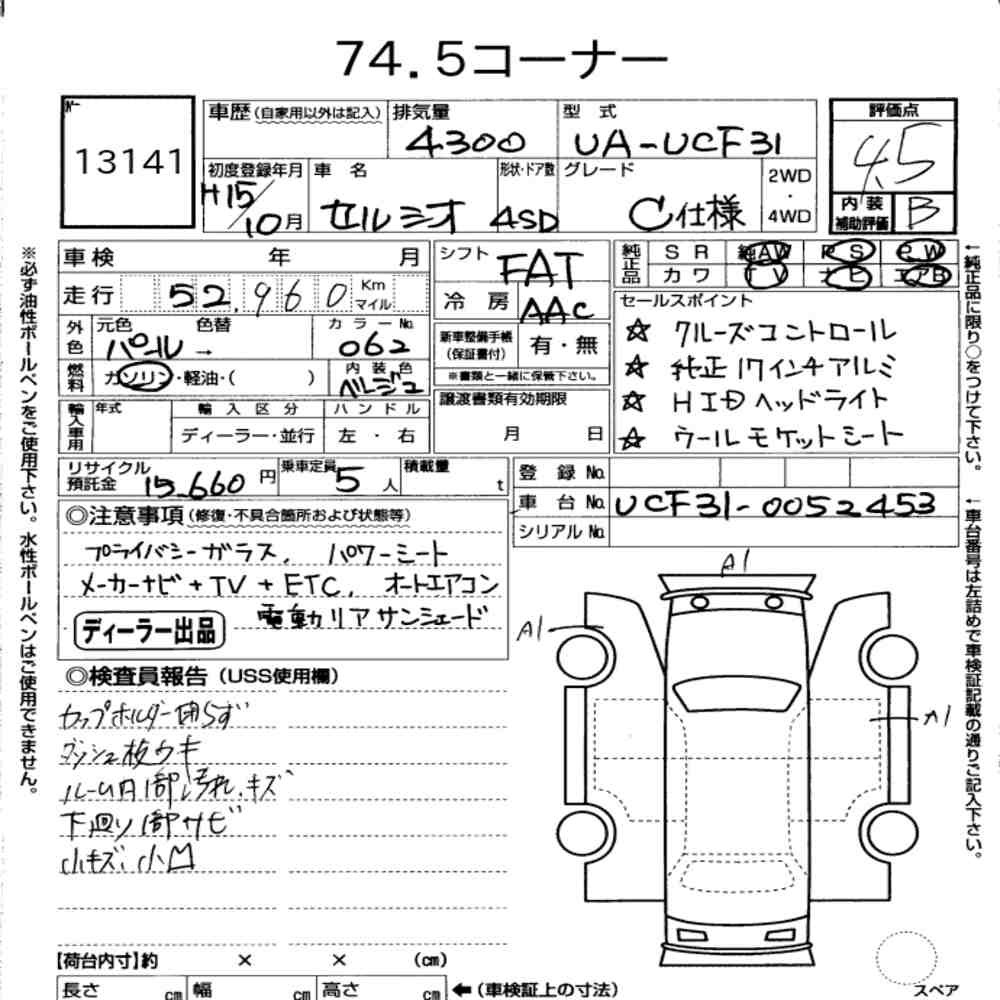 74.5コーナー
No.
13141
車歴(自家用以外は記入) 排気量 型 式
4300 UA-UCF31
初度登録年月 車 名 形状・ドア数 グレード
H15/10月 セルシオ 4SD C仕様
2WD
・
4WD
評価点
4.5
内 装
補助評価 B
車検 年 月
走行 52,960 Km
マイル
外色 元色 色替 カラーNo.
パール → 062
燃料 ガソリン・軽油・( ) 内装色
ベージュ
輸入車用 年式 輸 入 区 分 ハ ン ド ル
ディーラー・並行 左 ・ 右
シフト FAT
冷 房 AAC
新車整備手帳
(保証書付) 有・無
※書類と一緒に保管下さい。
譲渡書類有効期限
月 日
純正品 S R 純AW P S P W
カ ワ T V ナ ビ エアB
セールスポイント
☆ クルーズコントロール
☆ 純正17インチアルミ
☆ HIDヘッドライト
☆ ウールモケットシート
リサイクル
預託金 15,660 円 乗車定員 5 人 積載量 t
登 録 No.
車 台 No. UCF31-0052453
シリアル No.
◎注意事項(修復・不具合箇所および状態等)
プライバシーガラス, パワーシート
メーカーナビ+TV+ETC, オートエアコン
電動リアサンシェード
ディーラー出品
◎検査員報告(USS使用欄)
カップホルダー閉らず
ダッシュ板ウキ
ルーム内1部汚れ.キズ
下廻り1部サビ
小キズ、小凹
A1
A1
A1
【荷台内寸】約 × × (cm)
長さ cm 幅 cm 高さ cm ←(車検証上の寸法)
スペア
※必ず油性ボールペンをご使用下さい。水性ボールペンはご使用できません。
←純正品に限り○をつけて下さい。
←車台番号は左詰めで車検証記載の通りご記入下さい。